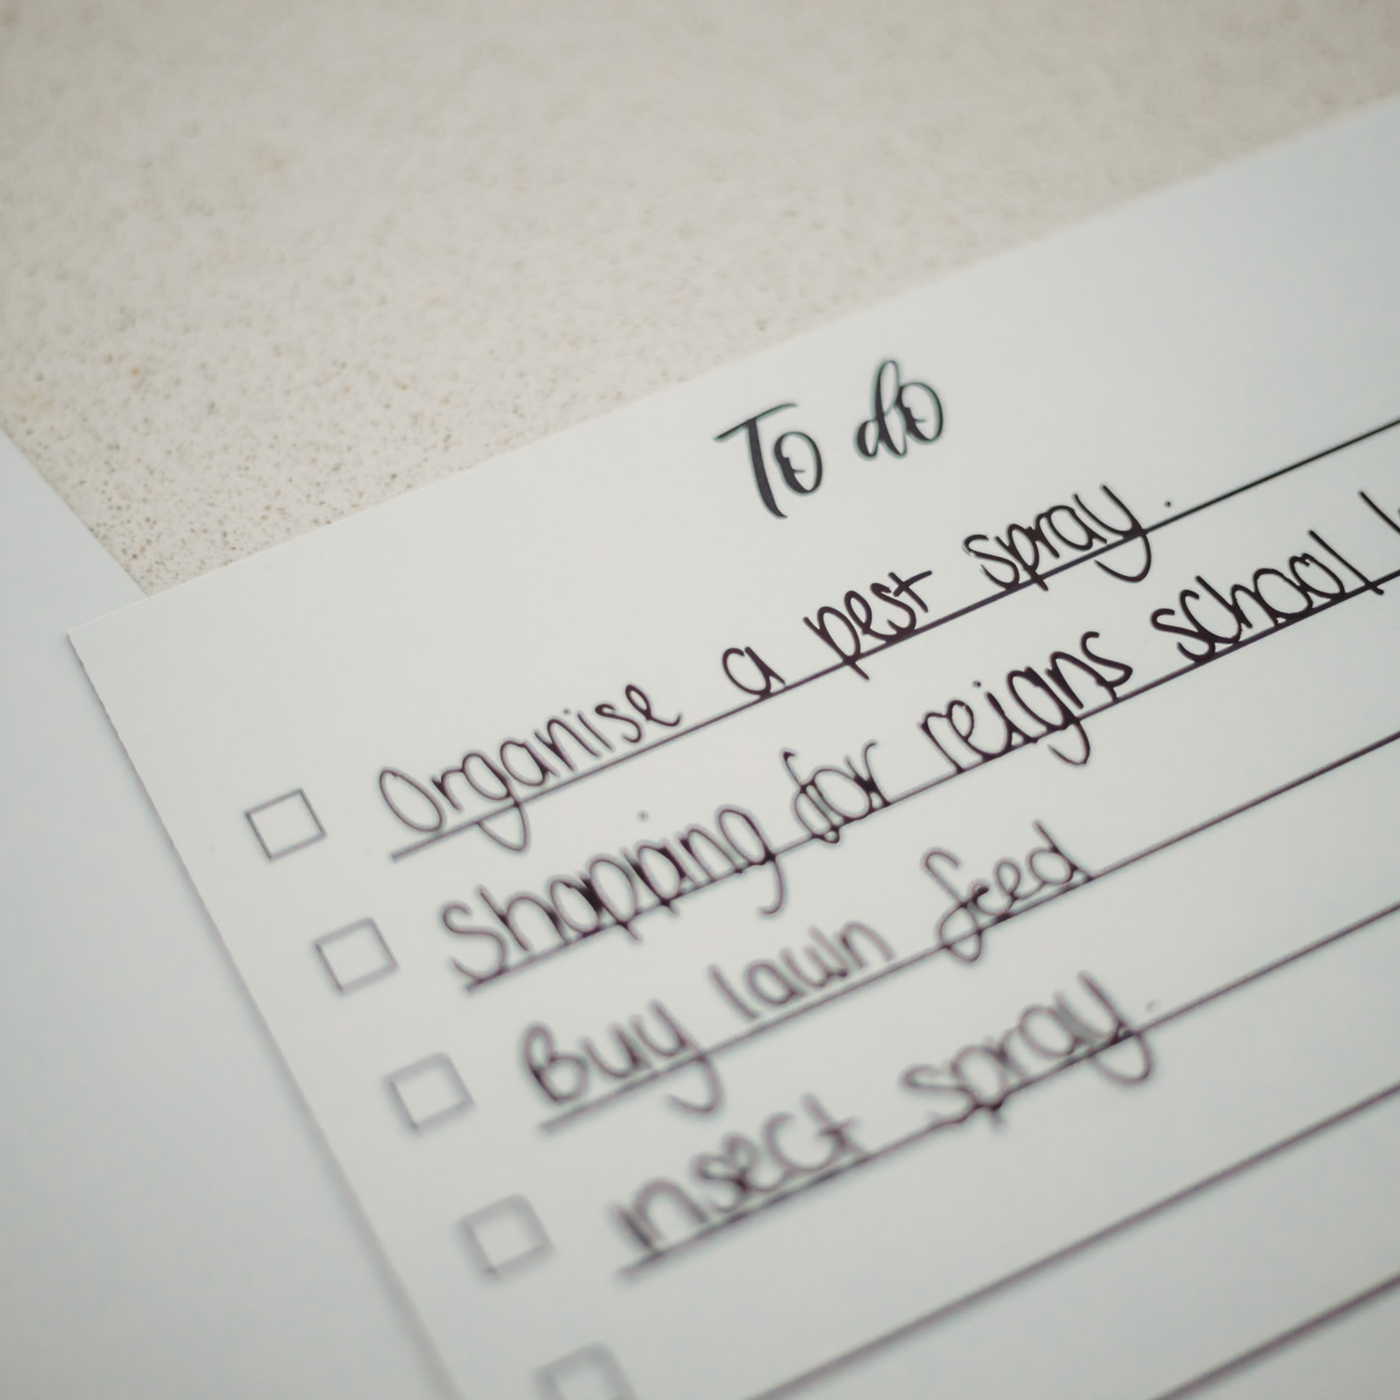 To do
Organise a pest spray.
Shopping for reigns school
Buy lawn feed
insect spray.